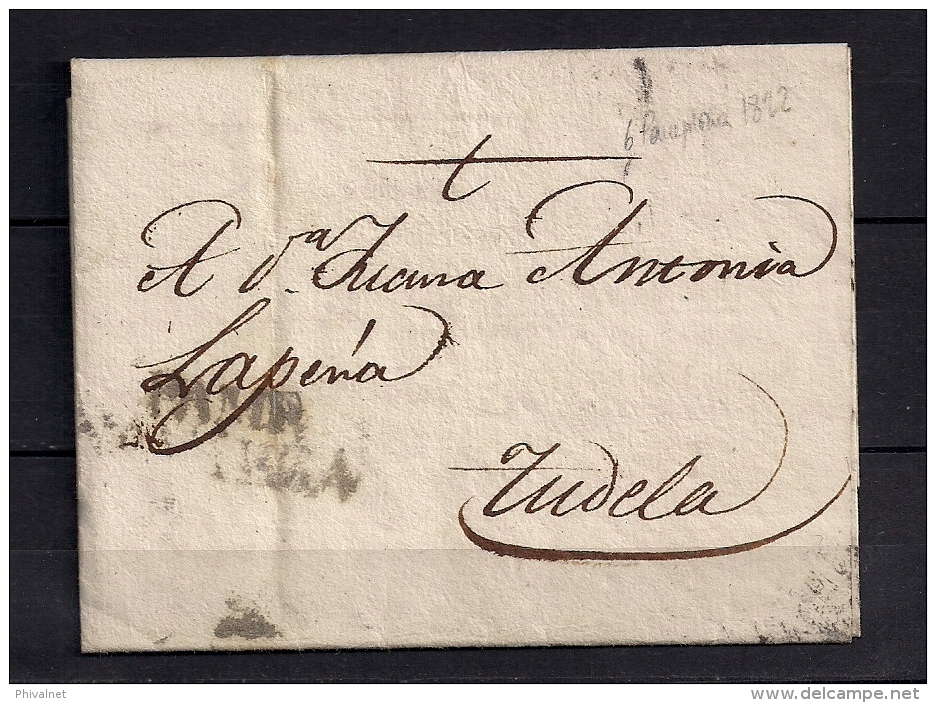 6 Pamplona 1822
A d.ª Juana Antonia
Lapeña
Tudela
Phivalnet
www.delcampe.net